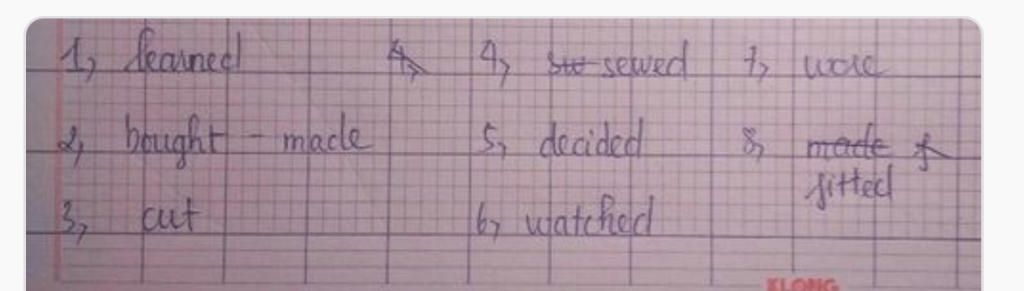 1, learned 4, 4, sew sewed 7, wore
2, bought - made 5, decided 8, made f
fitted
3, cut 6, watched
KLONG